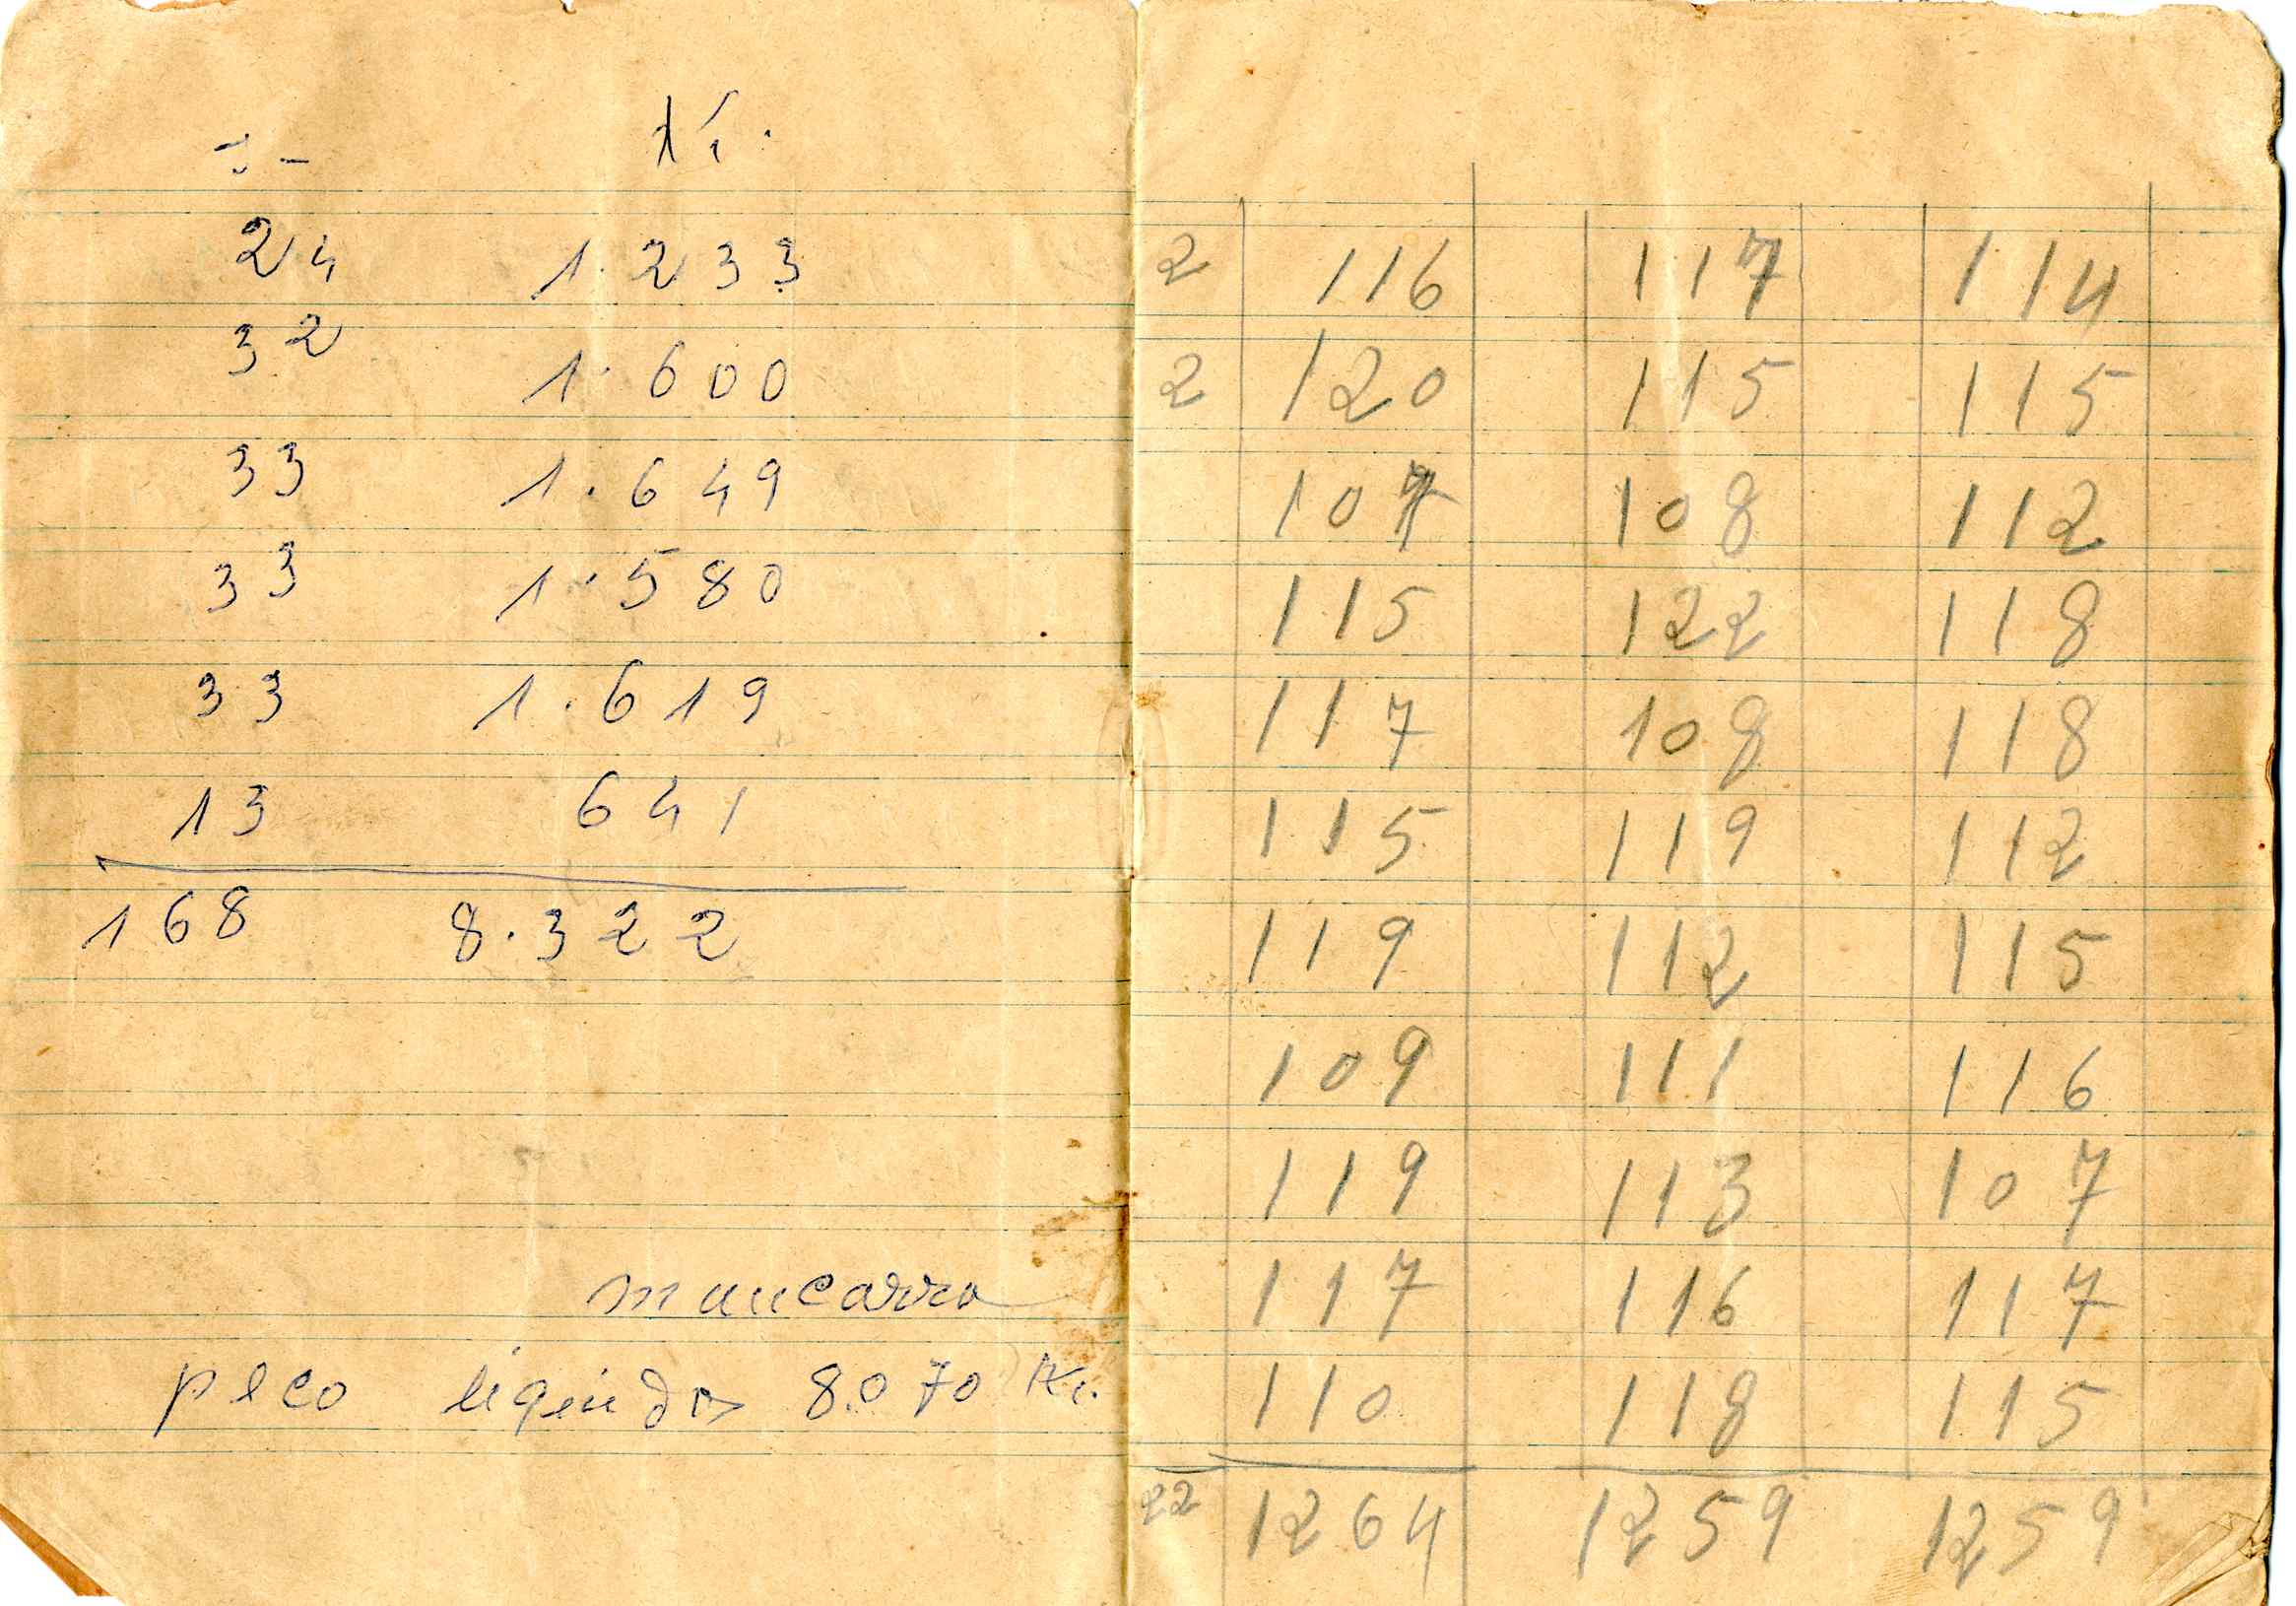 Ki.
24 1.233
32 1.600
33 1.649
33 1.580
33 1.619
13 641
168 8.322
mancarra
peco liquido 8.070 Ki.
2 116 117 114
2 120 115 115
107 108 112
115 122 118
117 108 118
115 119 112
119 112 115
109 111 116
119 113 107
117 116 117
110 118 115
22 1264 1259 1259